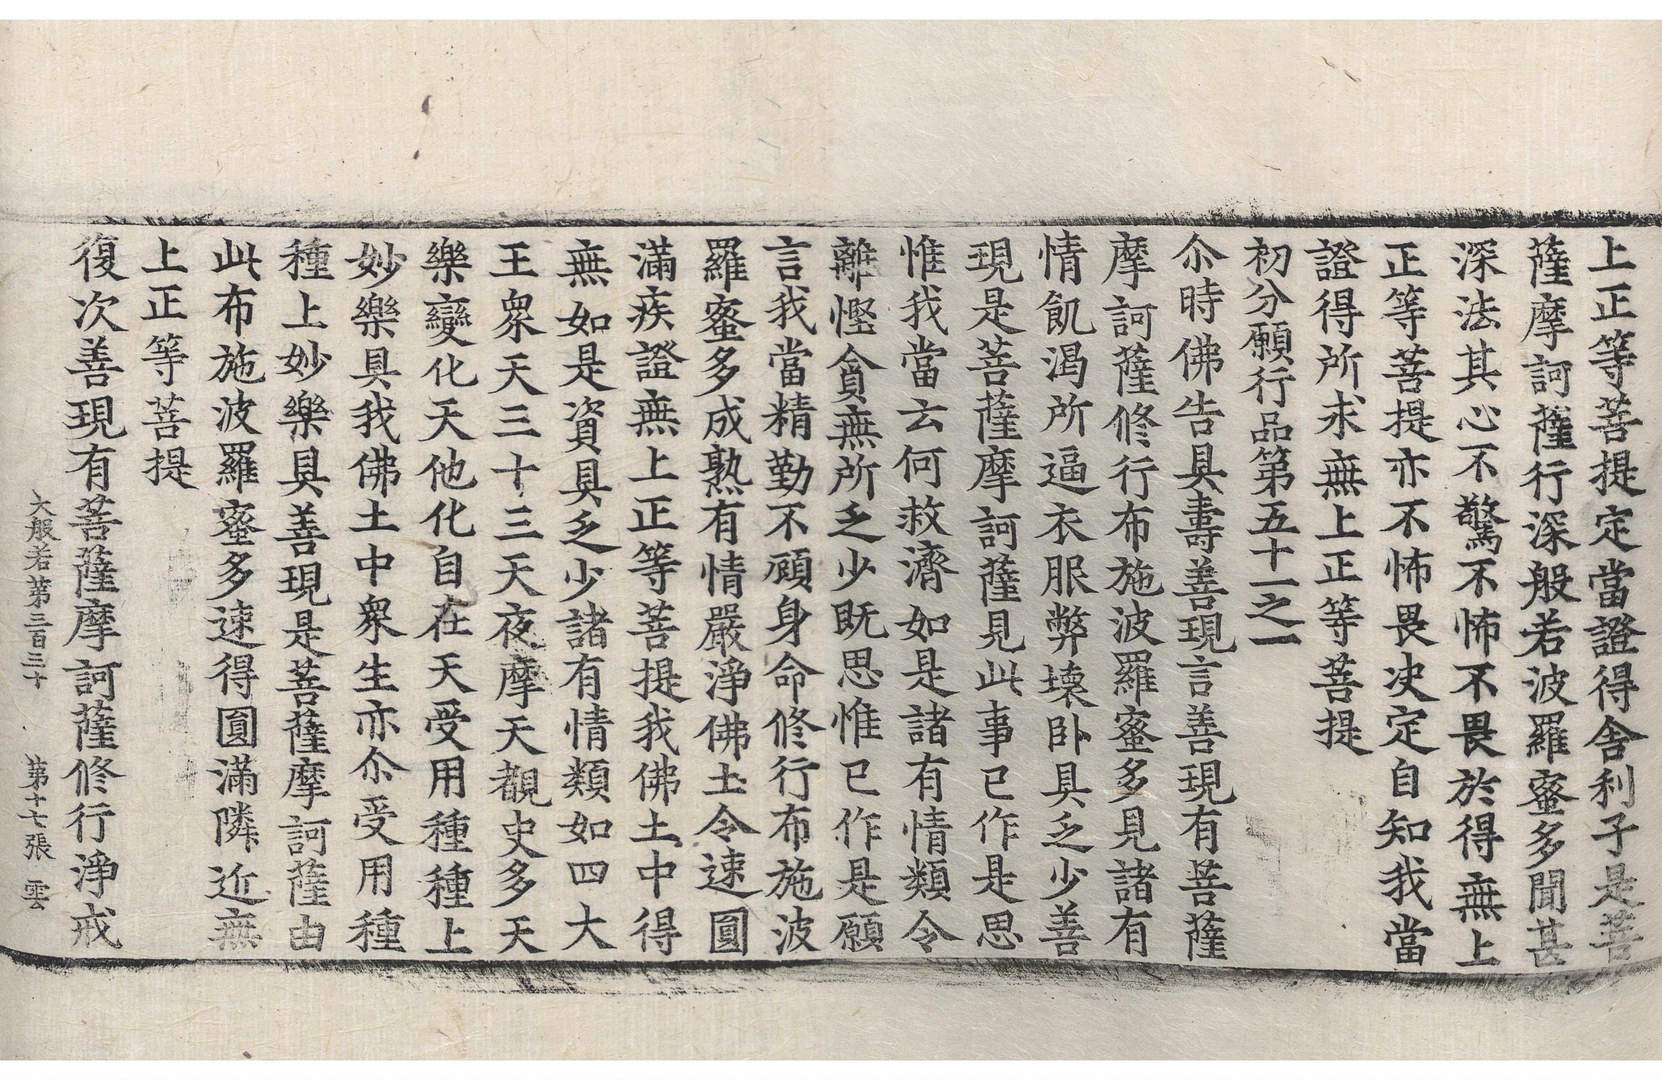 上正等菩提定當證得舍利子是菩
薩摩訶薩行深般若波羅蜜多聞甚
深法其心不驚不怖不畏於得無上
正等菩提亦不怖畏決定自知我當
證得所求無上正等菩提
初分願行品第五十一之一
尒時佛告具壽善現言善現有菩薩
摩訶薩修行布施波羅蜜多見諸有
情飢渴所逼衣服弊壞卧具乏少善
現是菩薩摩訶薩見此事已作是思
惟我當云何救濟如是諸有情類令
離慳貪無所乏少既思惟已作是願
言我當精勤不顧身命修行布施波
羅蜜多成熟有情嚴淨佛土令速圓
滿疾證無上正等菩提我佛土中得
無如是資具乏少諸有情類如四大
王衆天三十三天夜摩天覩史多天
樂變化天他化自在天受用種種上
妙樂具我佛土中衆生亦尒受用種
種上妙樂具善現是菩薩摩訶薩由
此布施波羅蜜多速得圓滿隣近無
上正等菩提
復次善現有菩薩摩訶薩修行淨戒
大般若第三百三十 第十七張 雲